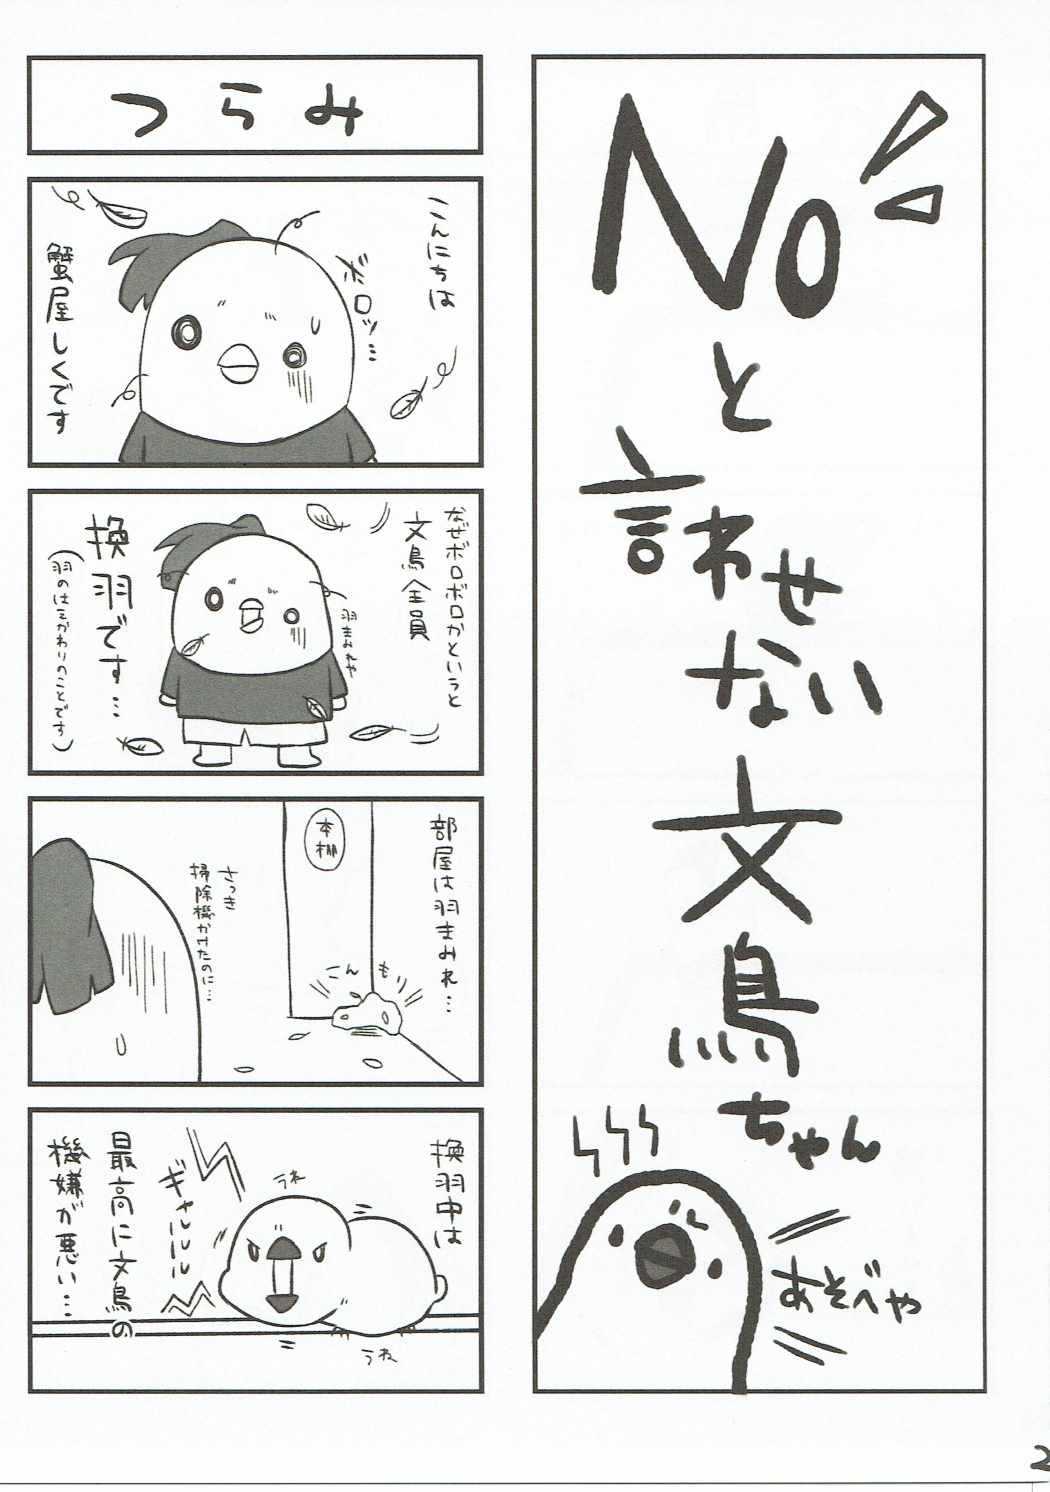 Noと
言わせない
文鳥
ちゃん
あそべや
つらみ
こんにちは
ボロッ…
蟹屋しくです
なぜボロボロかというと
文鳥全員
換羽です…
(羽のはえかわりのことです)
羽まみれや
部屋は羽まみれ…
本棚
こんもり
さっき
掃除機かけたのに…
換羽中は
うね
ギャルルルル
最高に文鳥の
機嫌が悪い…
うね
2